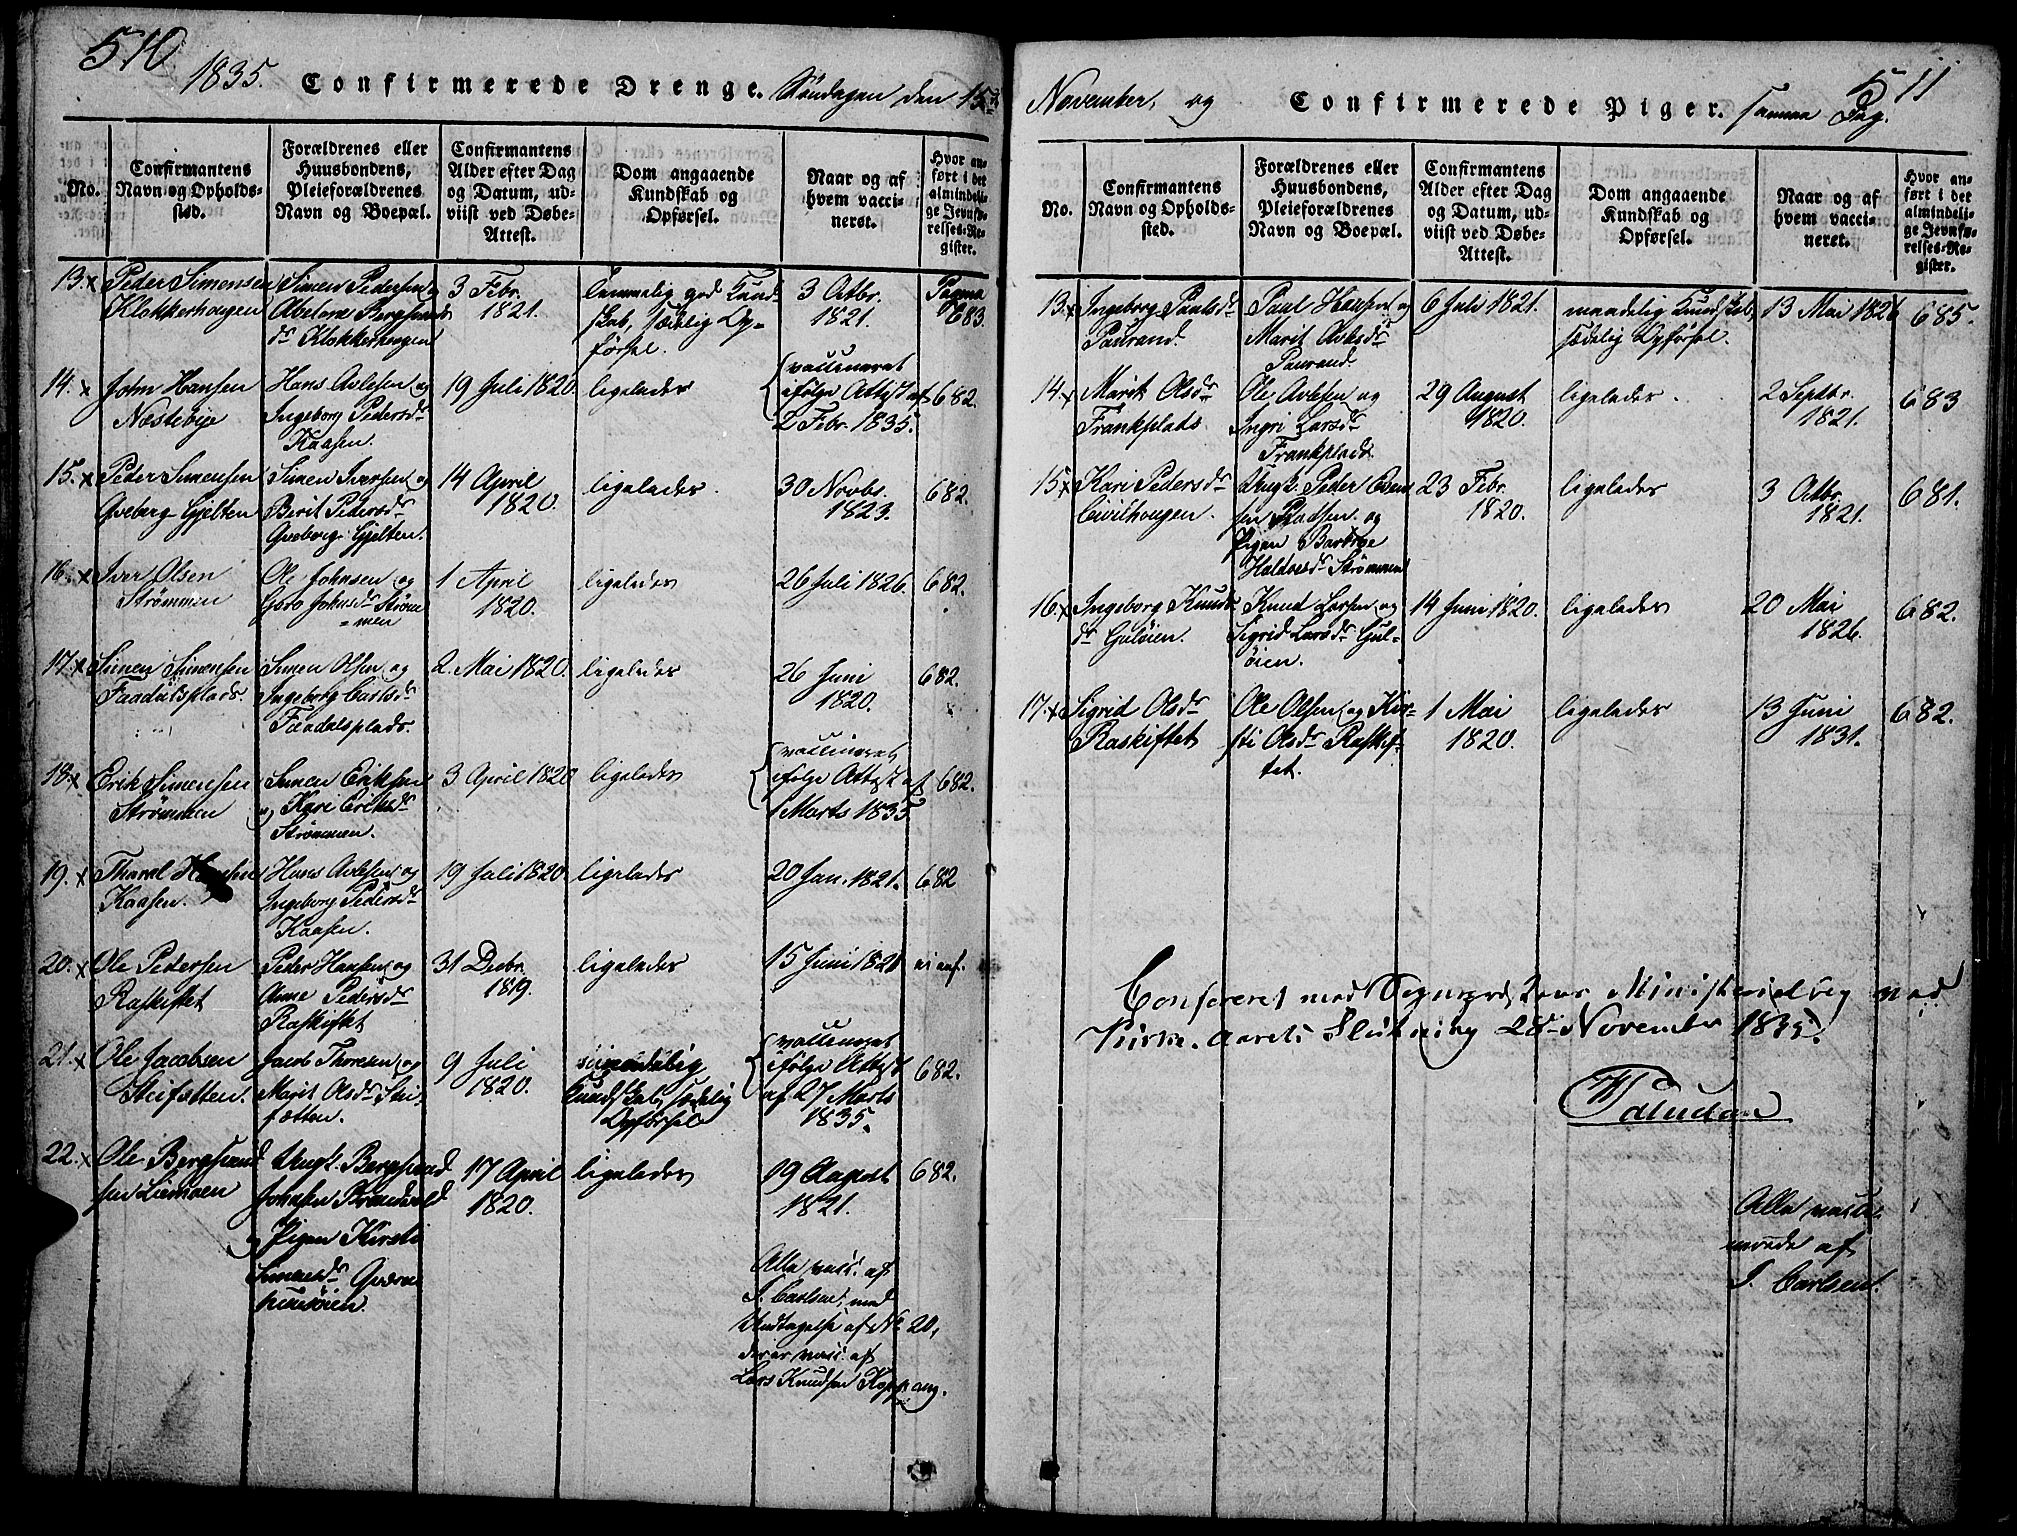 510
1835. Confirmerede Drenge. Søndagen den 15de
No.
Confirmantens
Navn og Opholds-
sted.
Forældrenes eller
Huusbondens,
Pleieforældrenes
Navn og Boepæl.
Confirmantens
Alder efter Dag
og Datum, ud-
viist ved Døbe-
Attest.
Dom angaaende
Kundskab og
Opførsel.
Naar og af
hvem vacci-
neret.
Hvor an-
ført i det
almindeli-
ge Jevnfø-
relses-Re-
gister.
13. x Peder Simensen
Klokkerhougen
Simen Pedersen og
Bergsends
dr Klokkerhougen
3 Febr.
1821.
temmelig god Kund-
skab, sædelig Op-
førsel.
3 Octbr.
1821.
Pagina
683.
14. x John Hansen
Næstebye
Hans Avlesen og
Ingeborg Pedersdr
Kaasen.
19 Juli 1820.
ligeledes
vaccineret
ifølge Attest af
2 Febr. 1835.
682.
15. x Peder Simensen
Qveberg Gjelten
Simen Iversen og
Berit Pedersdr
Qveberg Gjelten.
14 April
1820.
ligeledes.
30 Novbr.
1823.
682.
16. x Iver Olsen
Strømmen
Ole Johnsen og
Goro Johnsdr Strøm
=men
1 April
1820.
ligeledes
26 Juli 1826.
682.
17. x Simen Simensen
Faadalsplads.
Simen Olsen og
Ingeborg Carlsdr
Faadalsplads.
2. Mai 1820.
ligeledes
26 Juni
1820.
682.
18. x Erik Simensen
Strømmen
Simen Eriksen
og Kari Eriksdr
Strømmen.
3 April 1820
ligeledes
vaccineret
ifølge Attest af
1 Marts 1835
682.
19. x Thoral Hansen
Kaasen.
Hans Avlesen og
Ingeborg Pedersdr
Kaasen.
19 Juli 1820.
ligeledes
20 Jan. 1821.
682
20. x Ole Pedersen
Raskiftet
Peder Hansen og
Anne Pedersdr
Raskiftet
31 Decbr.
1819.
ligeledes
15 Juni 1821
ei anf.
21. x Ole Jacobsen
Steifætten.
Jacob Thoresen og
Marit Olsdr Stei-
fætten.
9 Juli
1820.
Kundskab, sædelig
Opførsel
vaccineret
ifølge Attest
af 27 Marts
1835.
682.
22. x Ole Bergsvend
sen Liemoen
Ungk. Bergsvend
Johnsen Brendvold
og Pigen Kirsti
Simensdr
17 April
1820.
ligeledes
19 August
1821.
682.
Alle vacc. af
S. Carlsen, med
Undtagelse af No 20,
der er vacc. af
Lars Knudsen Koppang.
511
November, og Confirmerede Piger. samme Dag.
No.
Confirmantens
Navn og Opholds-
sted.
Forældrenes eller
Huusbondens,
Pleieforældrenes
Navn og Boepæl.
Confirmantens
Alder efter Dag
og Datum, ud-
viist ved Døbe-
Attest.
Dom angaaende
Kundskab og
Opførsel.
Naar og af
hvem vacci-
neret.
Hvor an-
ført i det
almindeli-
ge Jevnfø-
relses-Re-
gister.
13. x Ingeborg Paulsdr
Paurand.
Paul Hansen og
Marit
Paurand.
6 Juli 1821.
maadelig Kundskab,
sædelig Opførsel.
13 Mai 1826
685.
14. x Marit Olsdr
Frankplads
Ole Avlesen og
Ingri Larsdr
Frankplads
29 August
1820.
ligeledes.
2 Septbr.
1821.
683
15. x Kari Pedersdr
Cvilhougen.
Ungk. Peder Esten
sen og
Pigen Barbroe
Haldorsdr Strømmen
23 Febr.
1820.
ligeledes
3 Octbr.
1821.
681.
16. x Ingeborg Knuds
dr Guløien.
Knud Larsen og
Sigrid Larsdr Gul-
øien.
14 Juni 1820.
ligeledes
20 Mai
1826.
682.
17. x Sigrid Olsdr
Raskiftet
Ole Olsen og Kir-
sti Olsdr Raskif-
tet.
1 Mai
1820.
ligeledes
13 Juni
1831.
682.
Confereret med Sognepræstens Ministerialbog ved
Kirke-Aarets Slutning 28de November 1835.
Paludan
Alle vacci-
nerede af
S. Carlsen.